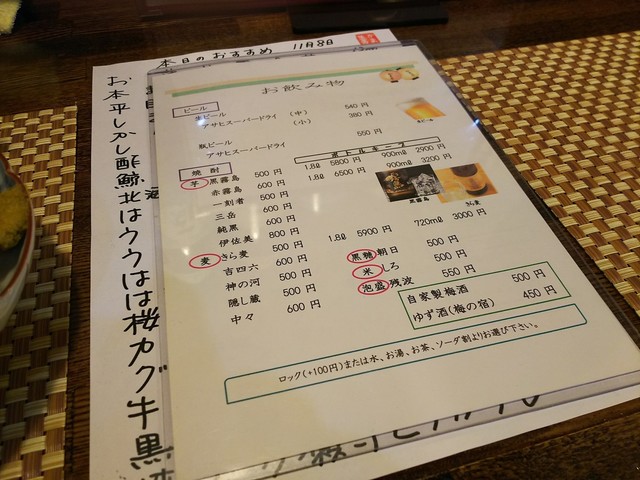 本日のおすすめ 11月8日
お飲み物
ビール
生ビール
アサヒスーパードライ (中) 540 円
(小) 380 円
瓶ビール
アサヒスーパードライ 550 円
ボトルキープ
焼酎
芋 黒霧島 500 円 1.8ℓ 5800 円 900mℓ 2900 円
赤霧島 600 円 1.8ℓ 6500 円 900mℓ 3200 円
一刻者 500 円
三岳 600 円
純黒 600 円
伊佐美 800 円
麦 きら麦 500 円 1.8ℓ 5900 円 720mℓ 3000 円
吉四六 600 円
神の河 500 円
隠し蔵 500 円
中々 600 円
黒糖 朝日 500 円
米 しろ 500 円
泡盛 残波 550 円
自家製梅酒 500 円
ゆず酒(梅の宿) 450 円
ロック(+100円)または水、お湯、お茶、ソーダ割よりお選び下さい。